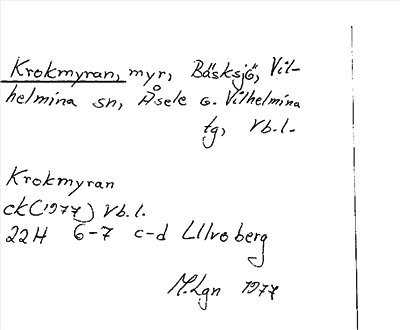 Krokmyran, myr, Bäsksjö, Vil-
helmina sn, Åsele o. Vilhelmina
tg, Vb.l.
Krokmyran
ck (1977) Vb.l.
22H 6-7 c-d Ullvoberg
M.Lgn 1977